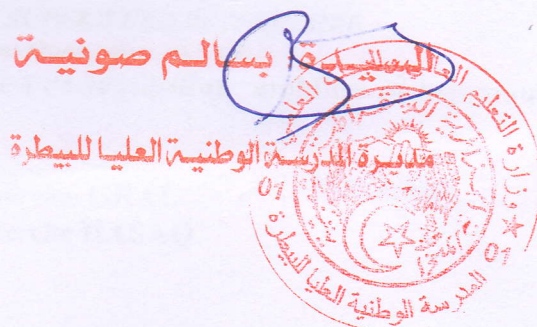 السيدة بسالم صونية
مديرة المدرسة الوطنية العليا للبيطرة
وزارة التعليم العالي
01
01
المدرسة الوطنية العليا للبيطرة